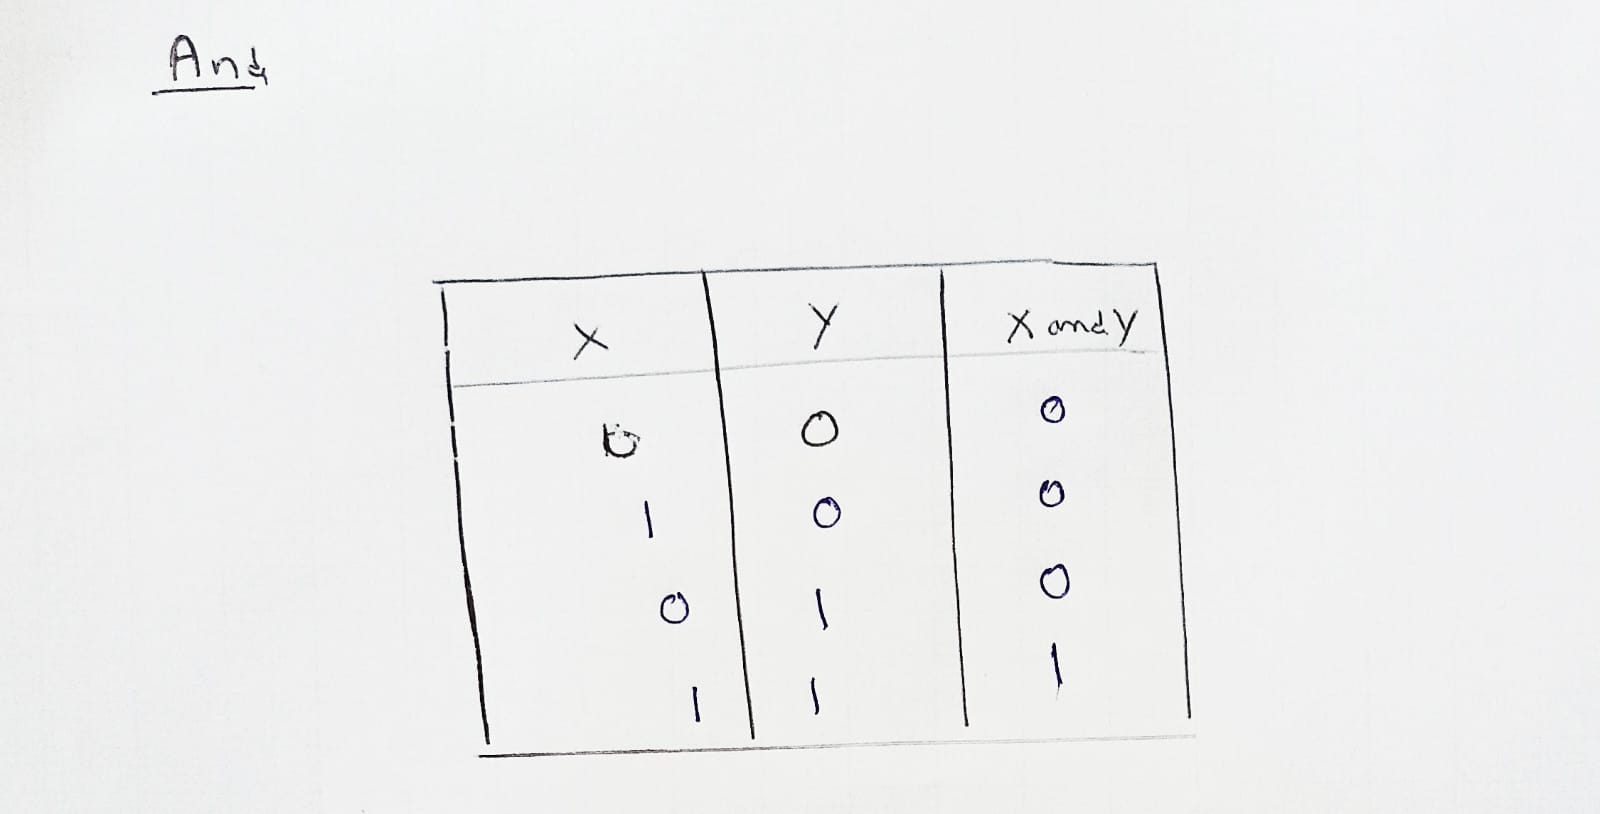 And
X Y X and Y
0 0 0
1 0 0
0 1 0
1 1 1